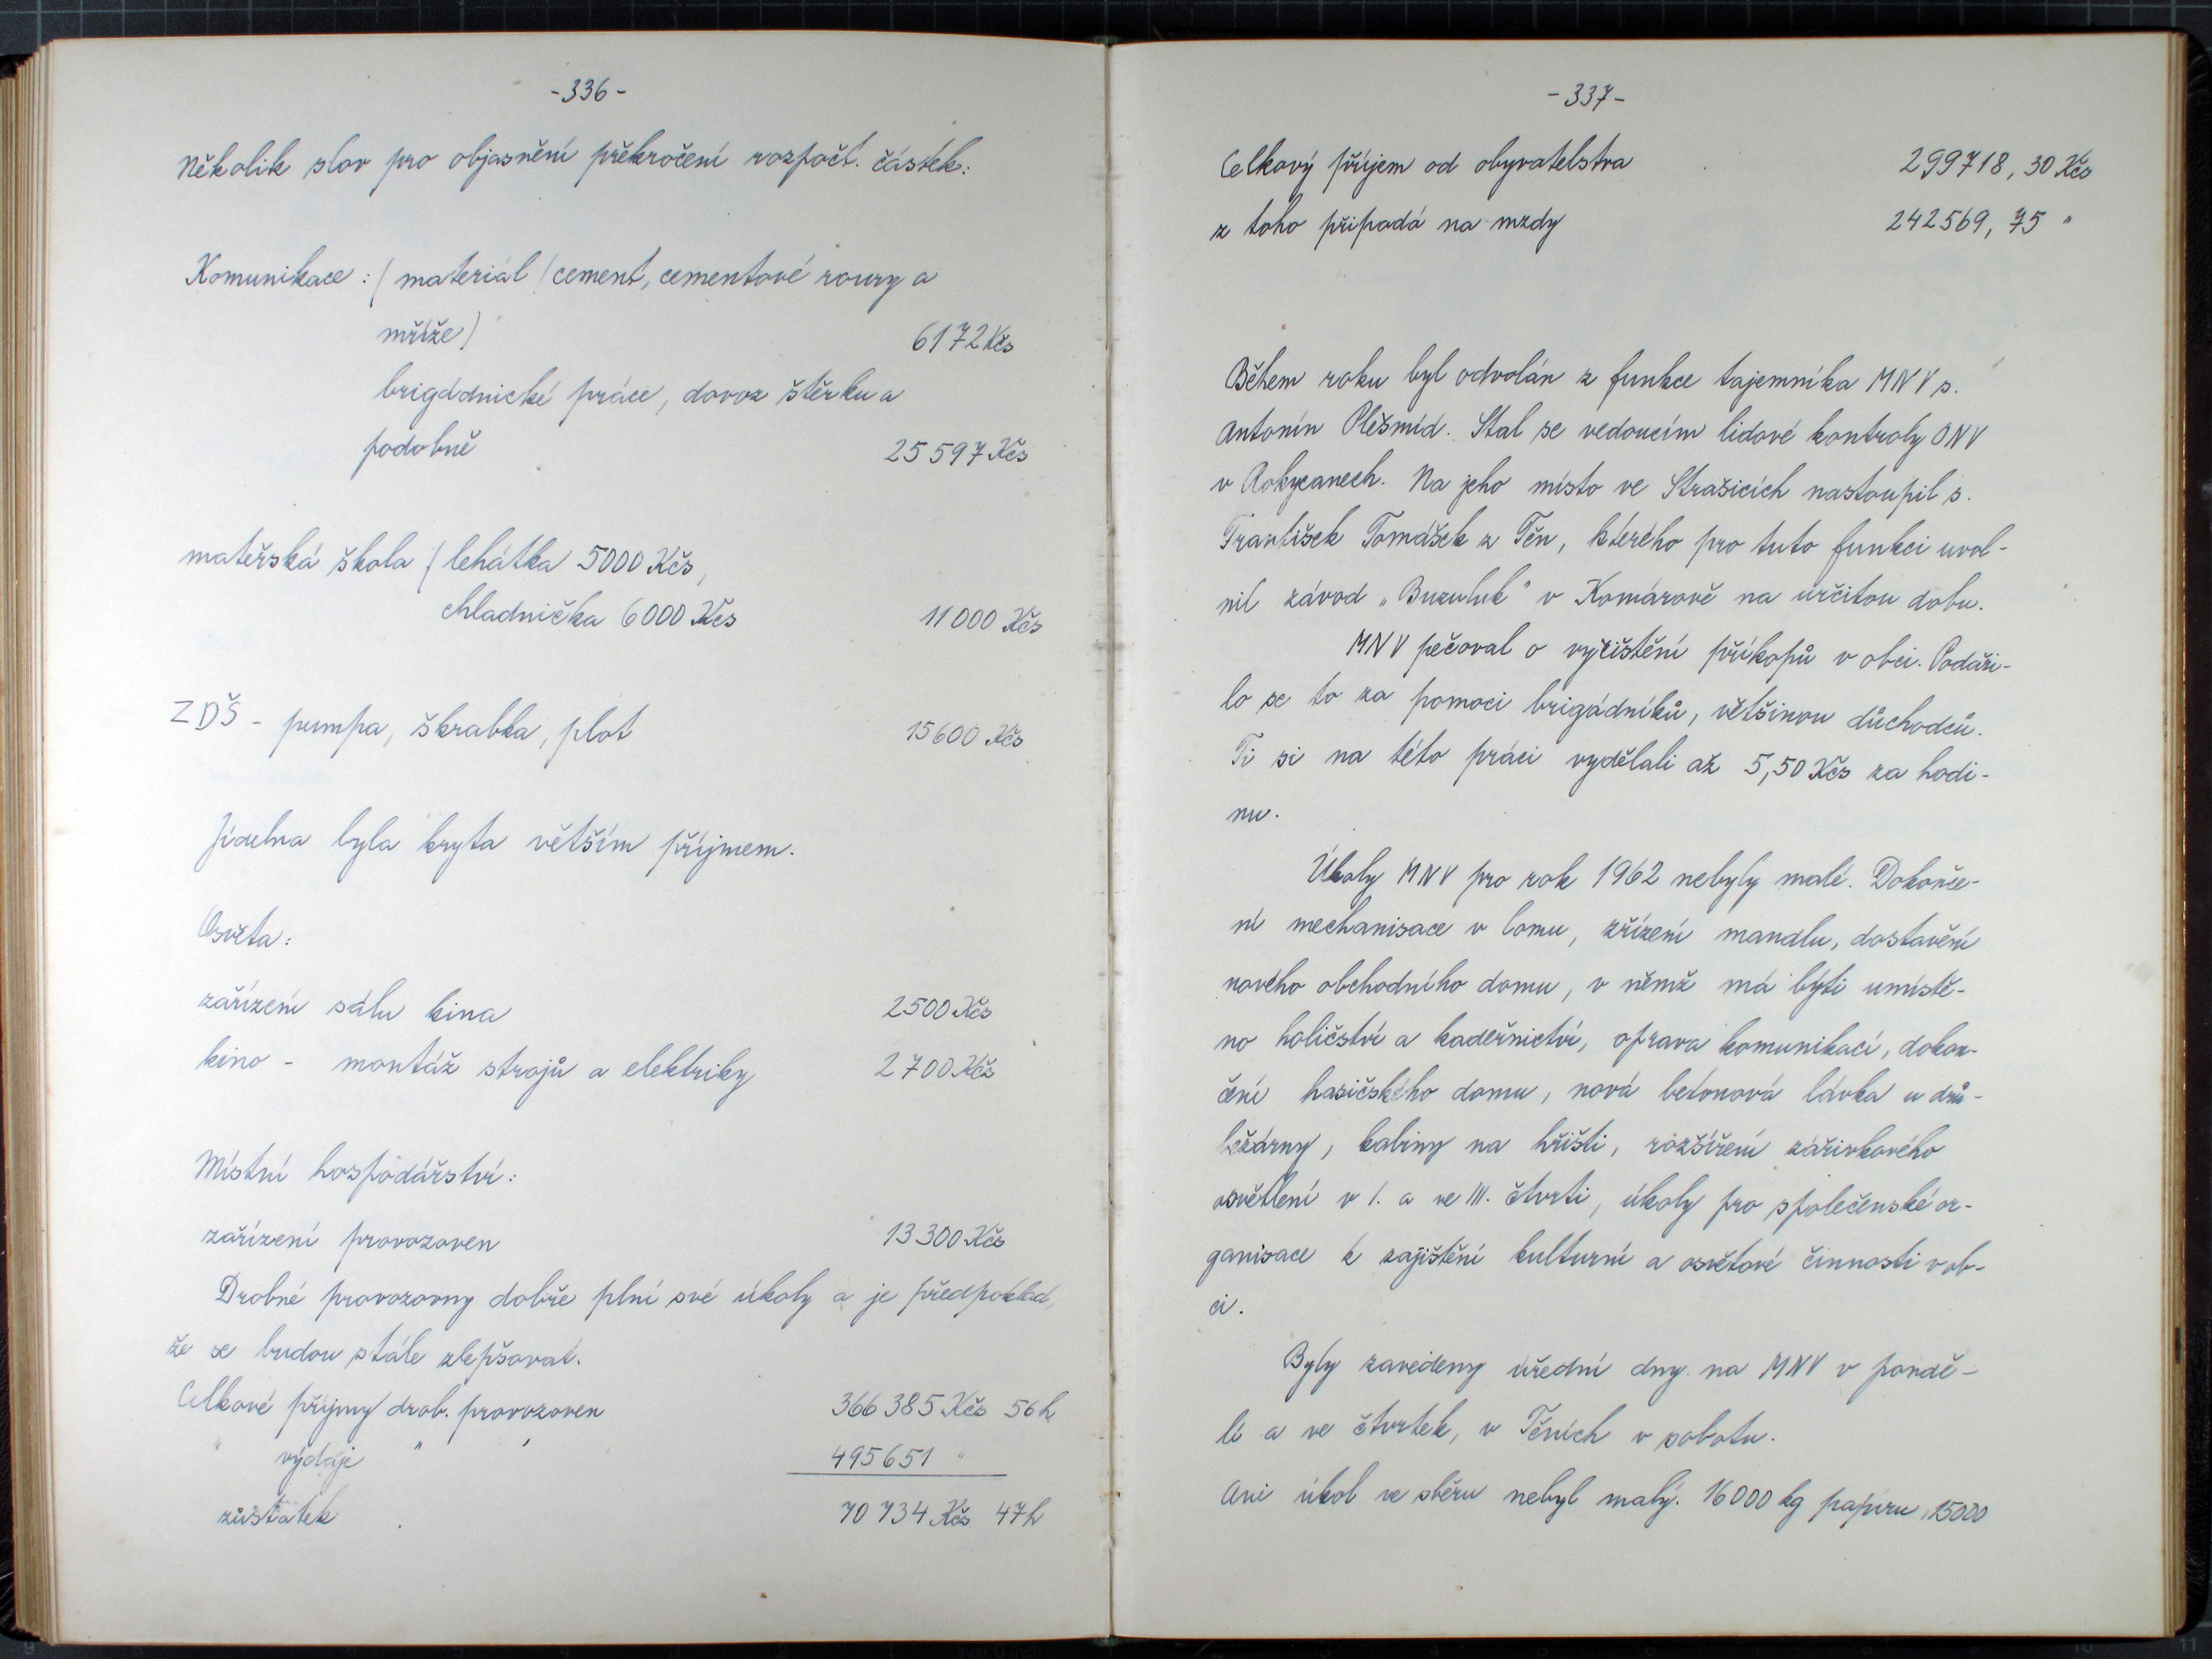 -336-
Několik slov pro objasnění překročení rozpočt. částek:
Komunikace: (materiál (cement, cementové roury a
mříže) 6172 Kčs
brigádnické práce, dovoz štěrku a
podobně 25 597 Kčs
mateřská škola (lehátka 5000 Kčs,
chladnička 6000 Kčs 11 000 Kčs
ZDŠ - pumpa, škrabka, plot 15600 Kčs
Jídelna byla kryta větším příjmem.
Osvěta:
zařízení sálu kina 2500 Kčs
kino - montáž strojů a elektriky 2 700 Kčs
Místní hospodářství:
zařízení provozoven 13 300 Kčs
Drobné provozovny dobře plní své úkoly a je předpoklad,
že se budou stále zlepšovat.
Celkové příjmy drob. provozoven 366 385 Kčs 56 h
" výdaje " " 495651 "
zůstatek 70 734 Kčs 47 h
-337-
Celkový příjem od obyvatelstva 299718,30 Kčs
z toho připadá na mzdy 242569,75 "
Během roku byl odvolán z funkce tajemníka MNV s.
Antonín Olešmíd. Stal se vedoucím lidové kontroly ONV
v Rokycanech. Na jeho místo ve Strašicích nastoupil s.
František Tomášek z Těn, kterého pro tuto funkci uvol-
nil závod „Buzuluk" v Komárově na určitou dobu.
MNV pečoval o vyčištění příkopů v obci. Podaři-
lo se to za pomoci brigádníků, většinou důchodců.
Ti si na této práci vydělali až 5,50 Kčs za hodi-
nu.
Úkoly MNV pro rok 1962 nebyly malé. Dokonče-
ní mechanisace v lomu, zřízení mandlu, dostavění
nového obchodního domu, v němž má býti umístě-
no holičství a kadeřnictví, oprava komunikací, dokon-
čení hasičského domu, nová betonová lávka u drů-
bežárny, kabiny na hřišti, rozšíření zářivkového
osvětlení v I. a ve III. čtvrti, úkoly pro společenské or-
ganisace k zajištění kulturní a osvětové činnosti v ob-
ci.
Byly zavedeny úřední dny na MNV v pondě-
lí a ve čtvrtek, v Těních v sobotu.
Ani úkol ve sběru nebyl malý. 16000 kg papíru, 15000